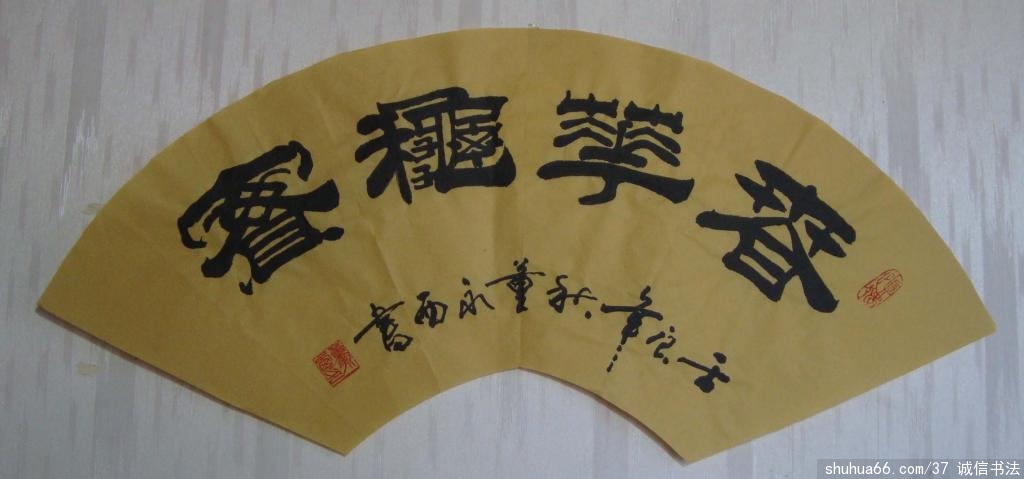 春華龝實
壬辰年秋董永西書
shuhua66.com/37 诚信书法